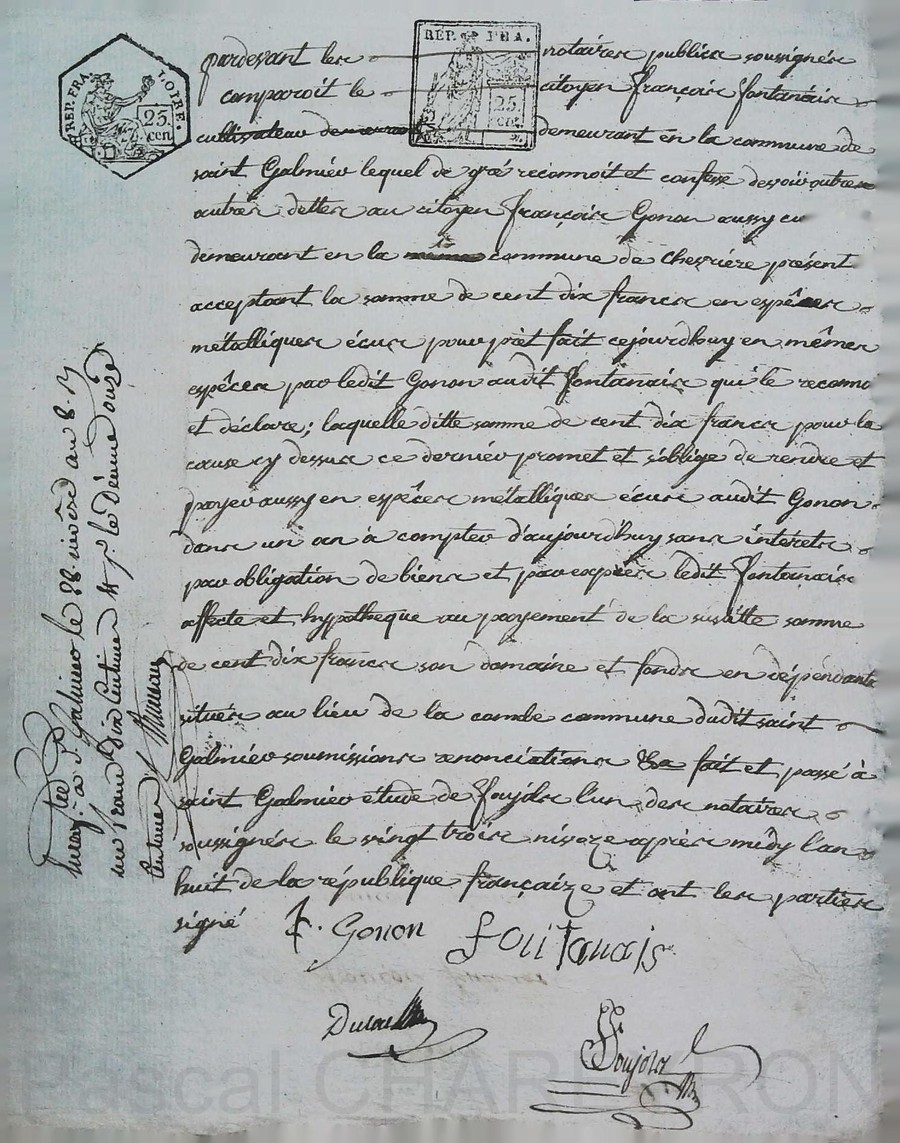 REP. FRA. LOIRE.
25
cen
REP. FRA.
25
cen.
pardevant les notaires publics soussignés
comparoit le citoyen françois fontanais
cultivateur demeurant demeurant en la commune de
saint Galmier lequel de gré reconnoit et confesse devoir outres
autres dettes au citoyen françois Gonon aussy cu
demeurant en la commune de Chevriere présent
acceptant la somme de cent dix francs en espêces
métalliques écus pour prêt fait cejourdhuy en mêmes
espêces par ledit Gonon audit fontanais qui le reconno
et déclare; laquelle ditte somme de cent dix francs pour la
cause cy dessus ce dernier promet et s'oblige de rendre et
payer aussy en espêces métalliques écus audit Gonon
dans un an à compter d'aujourdhuy sans interets
par obligation de biens et par exprès ledit fontanais
affecte et hypotheque au payement de la susditte somme
de cent dix francs son domaine et fonds en dépendants
situés au lieu de la combe commune dudit saint
Galmier soumissions renonciations &a fait et passé à
saint Galmier étude de foujols l'un des notaires
soussignés le vingt trois nivoze après midy l'an
huit de la république françaize et ont les parties
signé
f. Gonon fontanais
foujols
Enregistré à St. Galmier le 28. nivôse an 8. R
un franc dix centimes
Pascal CHAMBRON